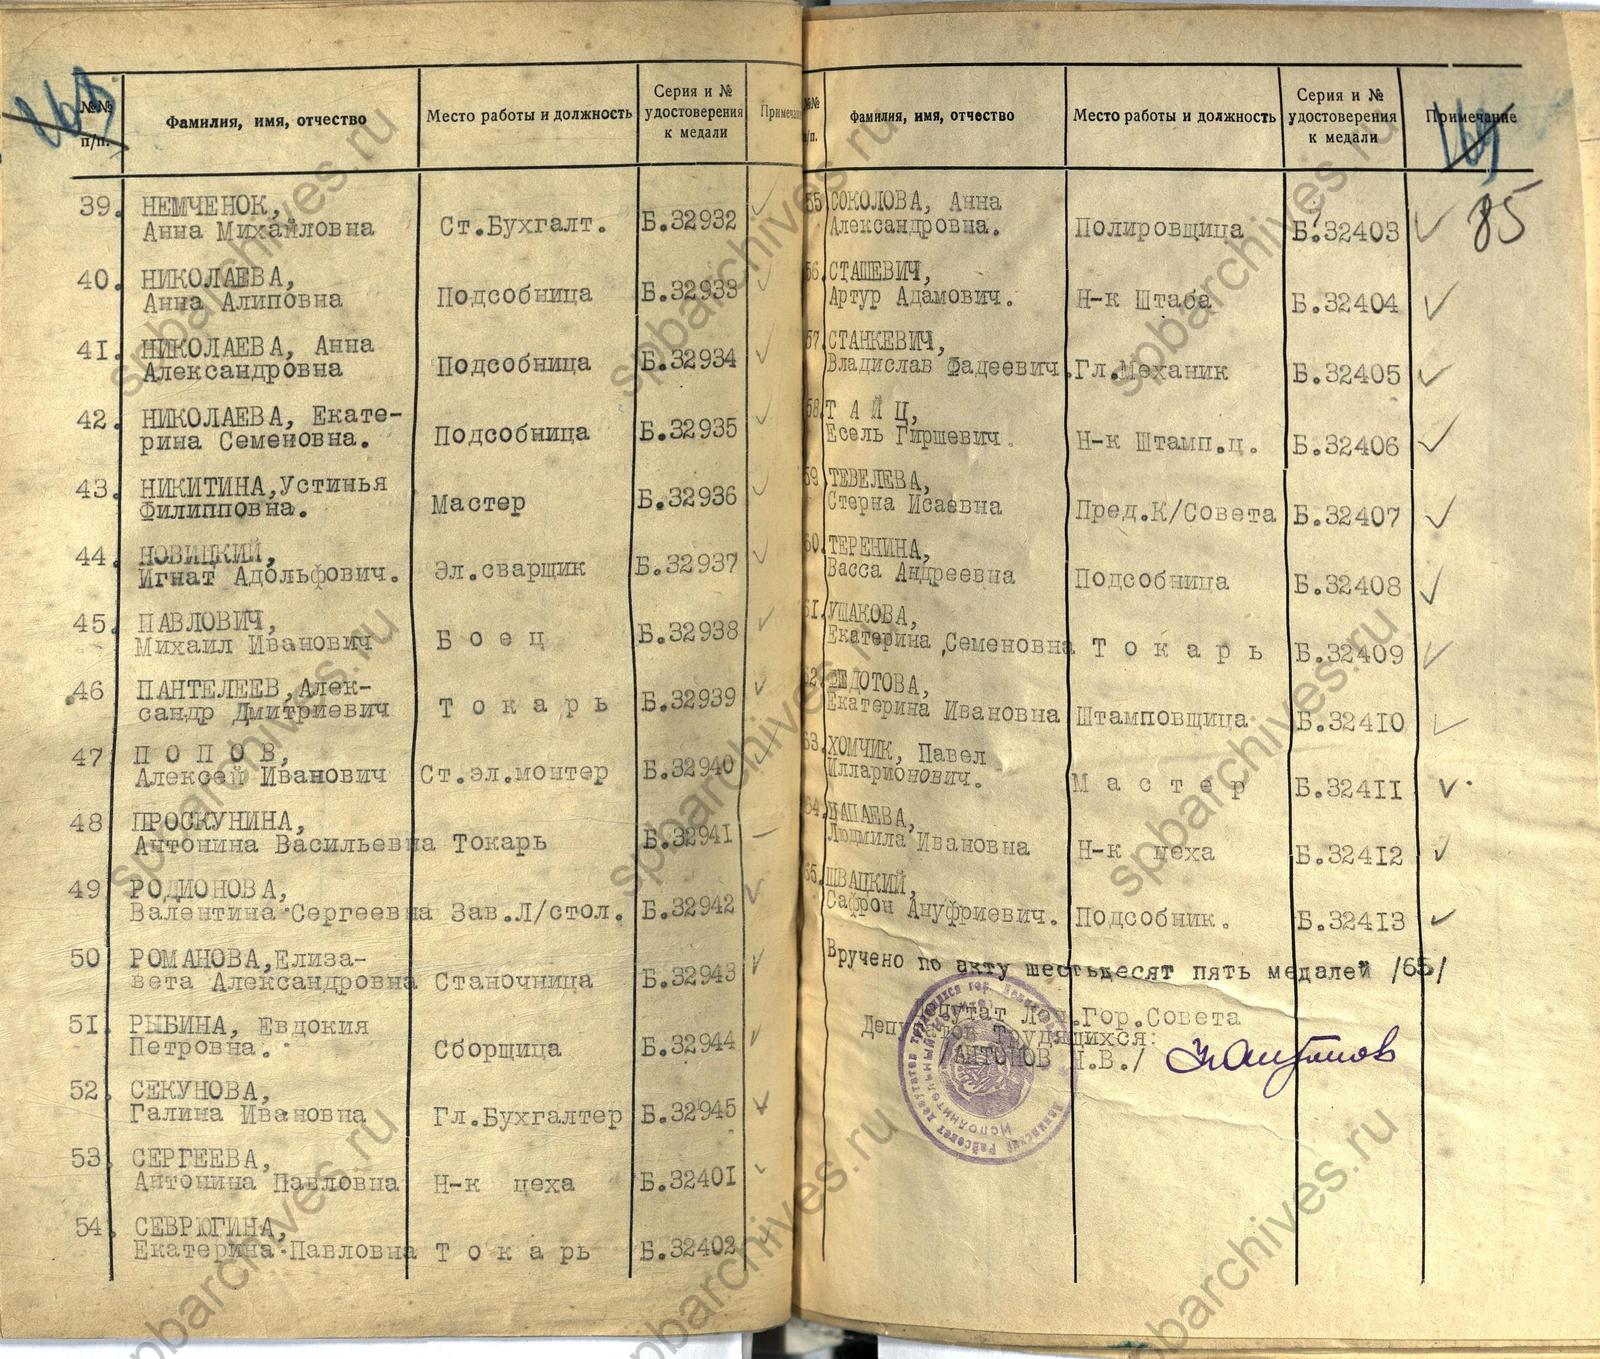 №№
п/п.
Фамилия, имя, отчество
Место работы и должность
Серия и №
удостоверения
к медали
39. НЕМЧЕНОК,
Анна Михайловна
Ст.Бухгалт.
Б.32932
40. НИКОЛАЕВА,
Анна Алиповна
Подсобница
Б.32933
41. НИКОЛАЕВА, Анна
Александровна
Подсобница
Б.32934
42. НИКОЛАЕВА, Екате-
рина Семеновна.
Подсобница
Б.32935
43. НИКИТИНА,Устинья
Филипповна.
Мастер
Б.32936
44. НОВИЦКИЙ,
Игнат Адольфович.
Эл.сварщик
Б.32937
45. ПАВЛОВИЧ,
Михаил Иванович
Б о е ц
Б.32938
46 ПАНТЕЛЕЕВ,Алек-
сандр Дмитриевич
Т о к а р ь
Б.32939
47 П О П О В,
Алексей Иванович
Ст.эл.монтер
Б.32940
48 ПРОСКУНИНА,
Антонина Васильевна
Токарь
Б.32941
49 РОДИОНОВА,
Валентина Сергеевна
Зав.Л/стол.
Б.32942
50 РОМАНОВА,Елиза-
вета Александровна
Станочница
Б.32943
51. РЫБИНА, Евдокия
Петровна.
Сборщица
Б.32944
52. СЕКУНОВА,
Галина Ивановна
Гл.Бухгалтер
Б.32945
53. СЕРГЕЕВА,
Антонина Павловна
Н-к цеха
Б.32401
54. СЕВРЮГИНА,
Екатерина Павловна
Т о к а р ь
Б.32402
Фамилия, имя, отчество
Место работы и должность
Серия и №
удостоверения
к медали
Примечание
85
55 СОКОЛОВА, Анна
Александровна.
Полировщица
Б.32403
56. СТАШЕВИЧ,
Артур Адамович.
Н-к Штаба
Б.32404
57. СТАНКЕВИЧ,
Владислав Фадеевич.
Гл.Механик
Б.32405
58. Т А Й Ц,
Есель Гиршевич.
Н-к Штамп.ц.
Б.32406
59 ТЕВЕЛЕВА,
Стерна Исаевна
Пред.К/Совета
Б.32407
60. ТЕРЕНИНА,
Васса Андреевна
Подсобница
Б.32408
61. УШАКОВА,
Екатерина Семеновна
Т о к а р ь
Б.32409
62. ФЕДОТОВА,
Екатерина Ивановна
Штамповщица
Б.32410
63. ХОМЧИК, Павел
Илларионович.
М а с т е р
Б.32411
64. ЦАПАЕВА,
Людмила Ивановна
Н-к цеха
Б.32412
65. ШВАЦКИЙ,
Сафрон Ануфриевич.
Подсобник.
Б.32413
Вручено по акту шестьдесят пять медалей /65/
Депутат Лен.Гор.Совета
Депутатов Трудящихся:
/АНТОНОВ И.В./
spbarchives.ru